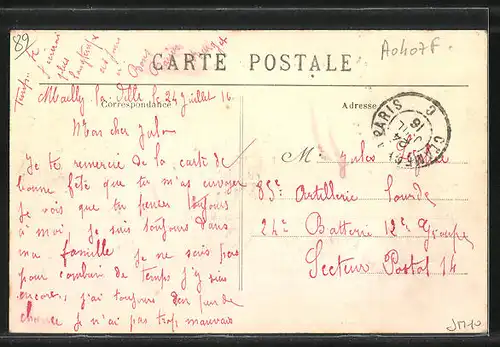 89
A0407F
CARTE POSTALE
Correspondance
Adresse
Mailly la Ville le 24 Juillet 16
Mon cher Jules
Je te remercie de la carte de
bonne fête que tu m'as envoyer
Je vois que tu penses toujours
à moi, je suis toujours dans
ma famille je ne sais pas
pour combien de temps j'y suis
encore, j'ai toujours un peu de
chance Je n'ai pas trop mauvais
temps
PARIS
16
Mr Jules
85e Artillerie Lourde
24e Batterie 12e Groupe
Secteur Postal 14